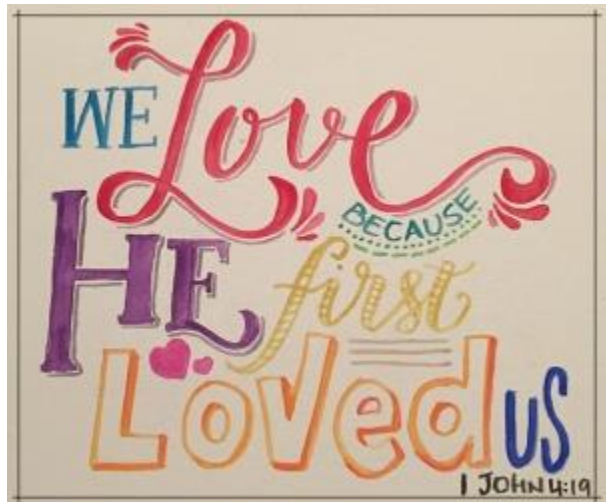 WE Love
BECAUSE
HE first
Loved US
1 JOHN 4:19